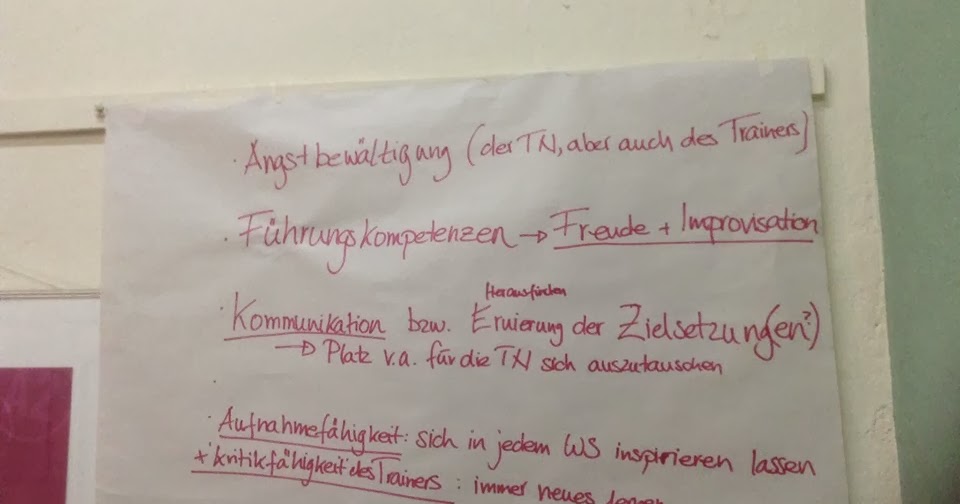 · Angstbewältigung (der TN, aber auch des Trainers)
· Führungskompetenzen → Freude + Improvisation
Herausfinden
· Kommunikation bzw. Eruierung der Zielsetzung(en?)
→ Platz v.a. für die TN sich auszutauschen
·
· Aufnahmefähigkeit: sich in jedem WS inspirieren lassen
+ kritikfähigkeit des Trainers: immer neues